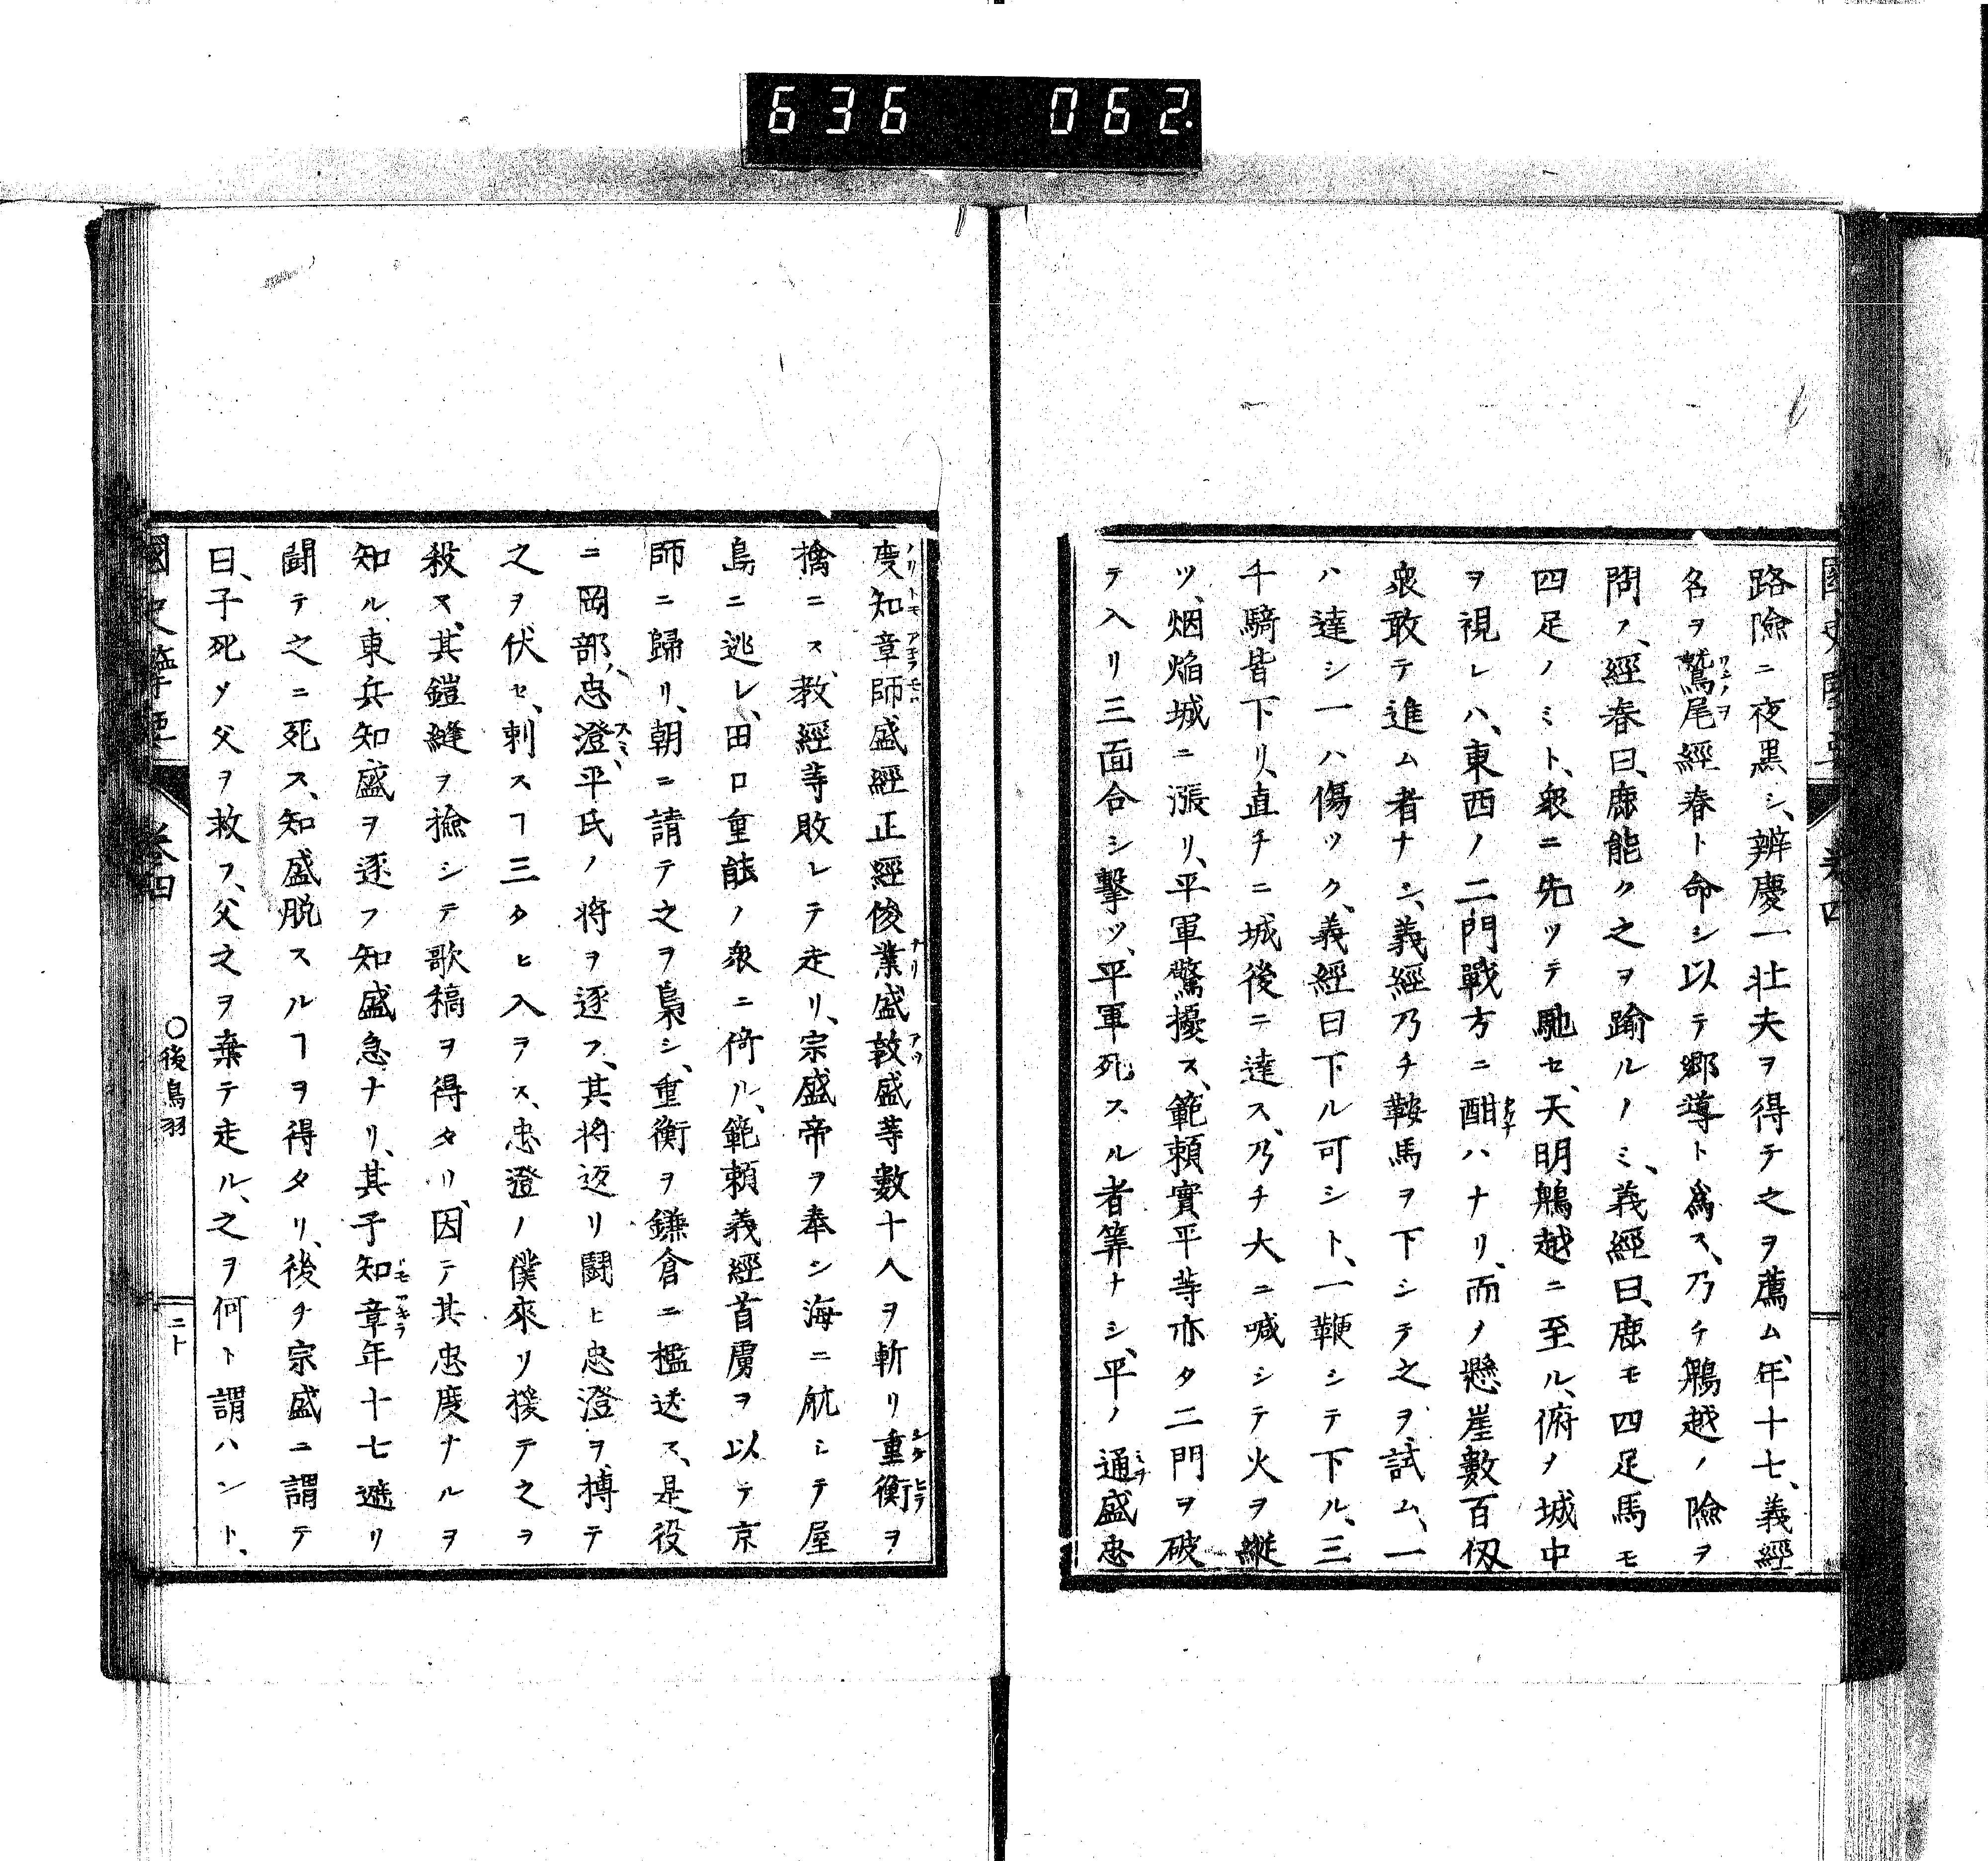 636 062
路險ニ夜黒シ、辨慶一壮夫ヲ得テ之ヲ薦ム、年十七、義經
名ヲ鷲尾經春ト命シ以テ郷導ト為ス、乃チ鵯越ノ險ヲ
問フ、經春曰、鹿能ク之ヲ踰ルノミ、義經曰、鹿モ四足馬モ
四足ノミト、衆ニ先ツテ馳セ、天明鵯越ニ至ル、俯メ城中
ヲ視レハ、東西ノ二門戰方ニ酣ハナリ、而メ懸崖數百仭
衆敢テ進ム者ナシ、義經乃チ鞍馬ヲ下シテ之ヲ試ム、一
ハ達シ一ハ傷ツク、義經曰下ル可シト、一鞭シテ下ル、三
千騎皆下リ、直チニ城後ニ達ス、乃チ大ニ喊シテ火ヲ縦
ツ、烟焔城ニ漲リ、平軍驚擾ス、範頼實平等亦タ二門ヲ破
テ入リ三面合シ撃ツ、平軍死スル者筭ナシ、平ノ通盛忠
度知章師盛經正經俊業盛敦盛等數十人ヲ斬リ重衡ヲ
擒ニス、教經等敗レテ走リ、宗盛帝ヲ奉シ海ニ航シテ屋
島ニ逃レ、田口重能ノ衆ニ倚ル、範頼義經首虜ヲ以テ京
師ニ歸リ、朝ニ請テ之ヲ梟シ、重衡ヲ鎌倉ニ檻送ス、是役
ニ岡部ノ忠澄、平氏ノ将ヲ逐フ、其将返リ闘ヒ忠澄ヲ搏テ
之ヲ伏セ、刺スヿ三タヒ入ラス、忠澄ノ僕來リ援テ之ヲ
殺ス、其鎧縫ヲ撿シテ歌稿ヲ得タリ、因テ其忠度ナルヲ
知ル、東兵知盛ヲ逐フ知盛急ナリ、其子知章年十七遮リ
闘テ之ニ死ス、知盛脱スルヿヲ得タリ、後チ宗盛ニ謂テ
曰、子死メ父ヲ救フ、父之ヲ棄テ走ル、之ヲ何ト謂ハント、
卷四 〇後鳥羽 二十